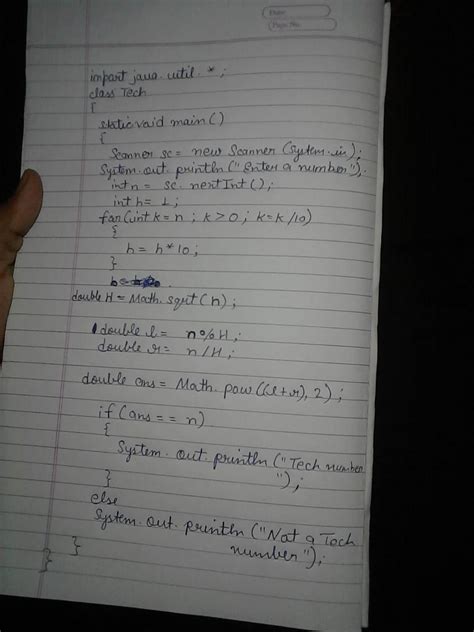 Date
Page No.
import java.util.*;
class Tech
{
static void main()
{
Scanner sc = new Scanner (System.in);
System.out.println("Enter a number");
int n = sc.nextInt();
int h = 1;
for(int k = n ; k > 0 ; k = k/10)
{
h = h*10;
}
double H = Math.sqrt(h);
double l = n%H;
double r = n/H;
double ans = Math.pow((l+r),2);
if (ans == n)
{
System.out.println("Tech number
");
}
else
System.out.println("Not a Tech
number");
}
}